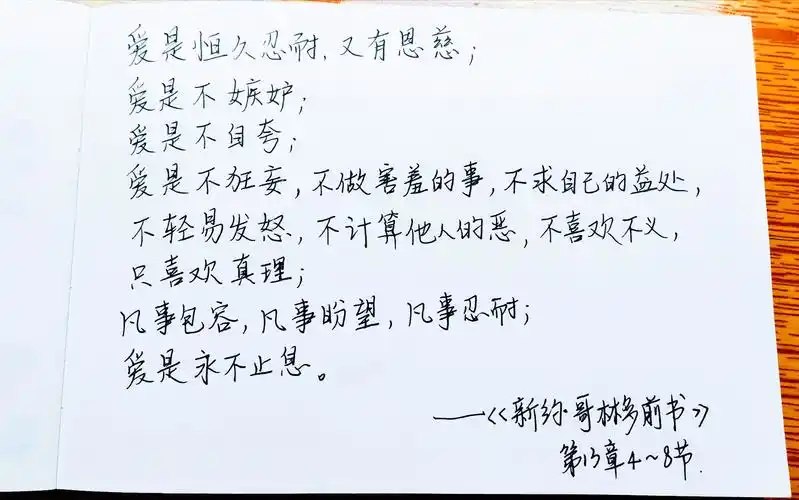 爱是恒久忍耐,又有恩慈;
爱是不嫉妒;
爱是不自夸;
爱是不狂妄,不做害羞的事,不求自己的益处,
不轻易发怒,不计算他人的恶,不喜欢不义,
只喜欢真理;
凡事包容,凡事盼望,凡事忍耐;
爱是永不止息。
——《新约·哥林多前书》
第13章4~8节.